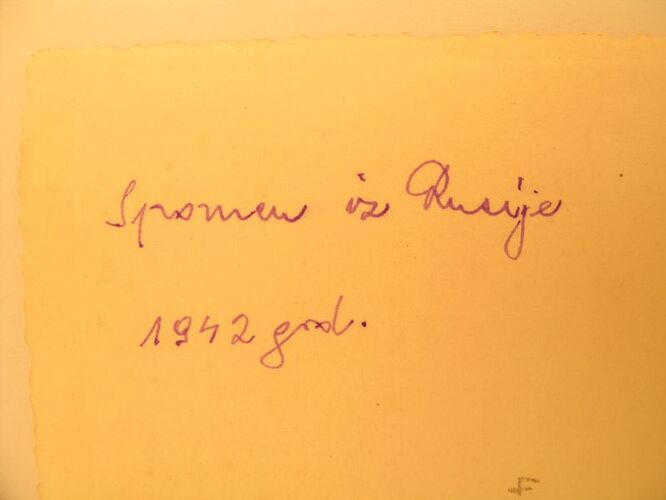 Spomen iz Rusije
1942 god.
F